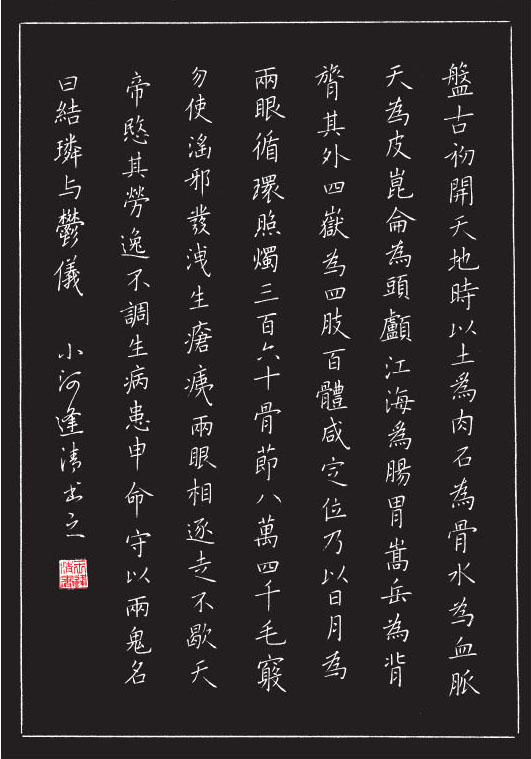 盤古初開天地時以土為肉石為骨水為血脈
天為皮崑崙為頭顱江海為腸胃嵩岳為背
膂其外四嶽為四肢百體咸定位乃以日月為
兩眼循環照燭三百六十骨節八萬四千毛竅
勿使淫邪發洩生瘡痍兩眼相逐走不歇天
帝愍其勞逸不調生病患申命守以兩鬼名
曰結璘与鬱儀
小河逢清書之